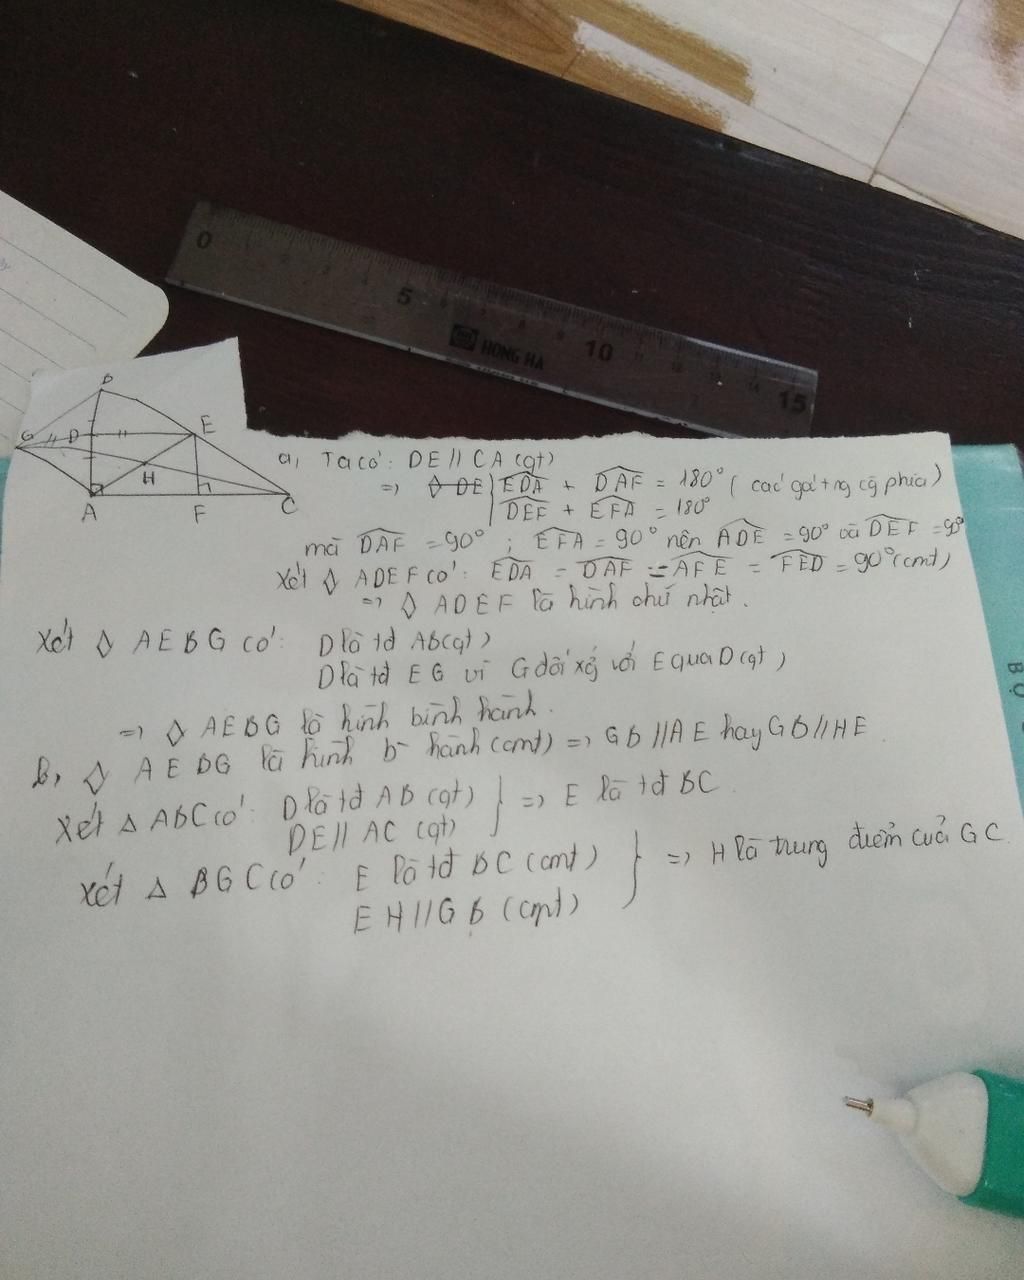 0
5
10
15
HONG HA
B
G D E
H
A F C
a, Ta có: DE // CA (gt)
=> ◊ DE | EDA + DAF = 180° (các góc trg cg phía)
DEF + EFA = 180°
mà DAF = 90° ; EFA = 90° nên ADE = 90° và DEF = 90°
Xét ◊ ADEF có: EDA = DAF = AFE = FED = 90° (cmt)
=> ◊ ADEF là hình chứ nhật.
Xét ◊ AEBG có: D là tđ AB (gt)
D là tđ EG vì G đối xg với E qua D (gt)
=> ◊ AEBG là hình bình hành.
b, ◊ AEBG là hình b hành (cmt) => GB // AE hay GB // HE
Xét Δ ABC có: D là tđ AB (gt) } => E là tđ BC
DE // AC (gt)
Xét Δ BGC có: E là tđ BC (cmt) } => H là trung điểm của GC
EH // GB (cmt)
BỌ